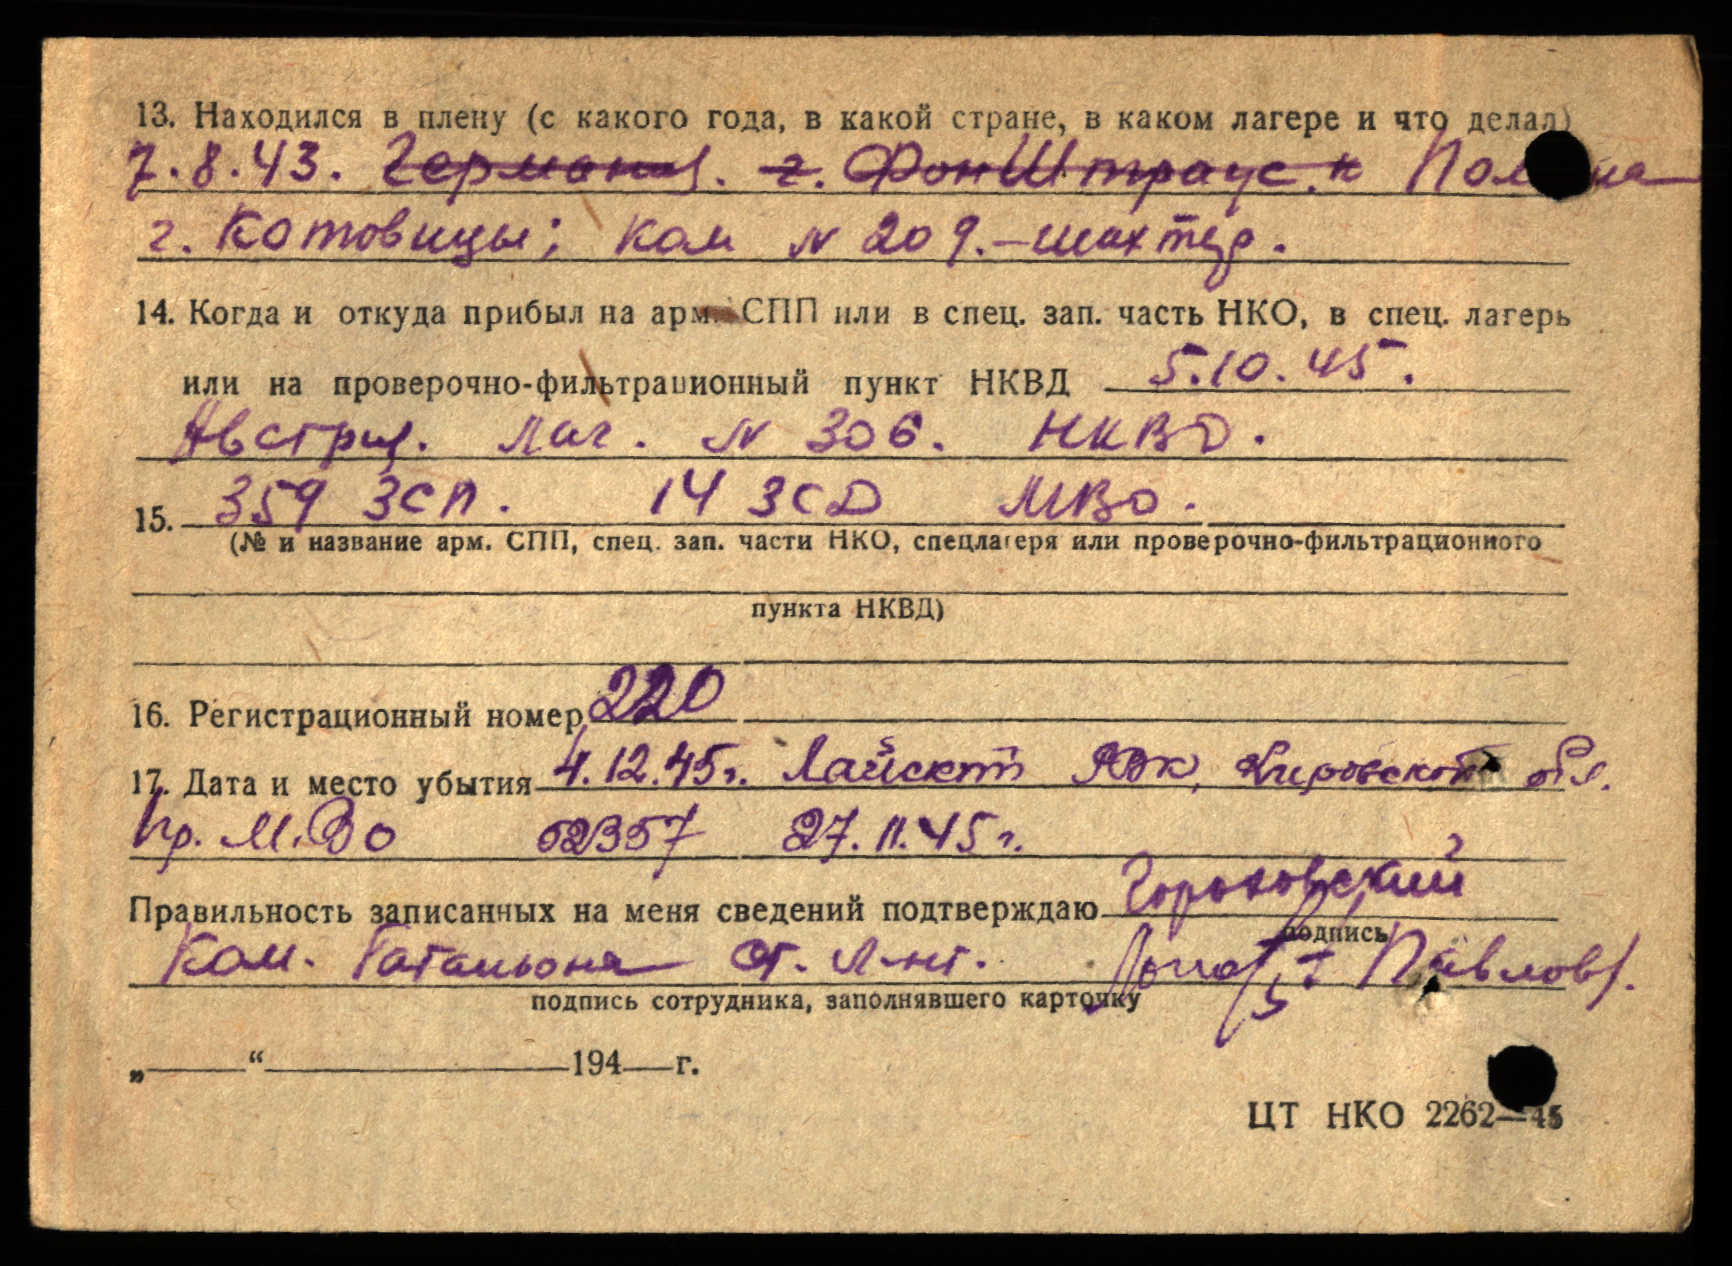 13. Находился в плену (с какого года, в какой стране, в каком лагере и что делал)
7.8.43. Германия. г. Фон Штраус. н Польша
г. Котовицы; ком № 209.-шахтер.
14. Когда и откуда прибыл на арм. СПП или в спец. зап. часть НКО, в спец. лагерь
или на проверочно-фильтрационный пункт НКВД 5.10.45.
Австрия. Лаг. № 306. НКВД.
15. 359 ЗСП. 14 ЗСД МВО.
(№ и название арм. СПП, спец. зап. части НКО, спецлагеря или проверочно-фильтрационного
пункта НКВД)
16. Регистрационный номер 220
17. Дата и место убытия 4.12.45г. Лайский РВК, Кировской обл.
Пр. М.ВО 02357 27.11.45г.
Правильность записанных на меня сведений подтверждаю
подпись
Ком. батальона ст. л-нт. Павлов
подпись сотрудника, заполнявшего карточку
„ “ 194 г.
ЦТ НКО 2262—45